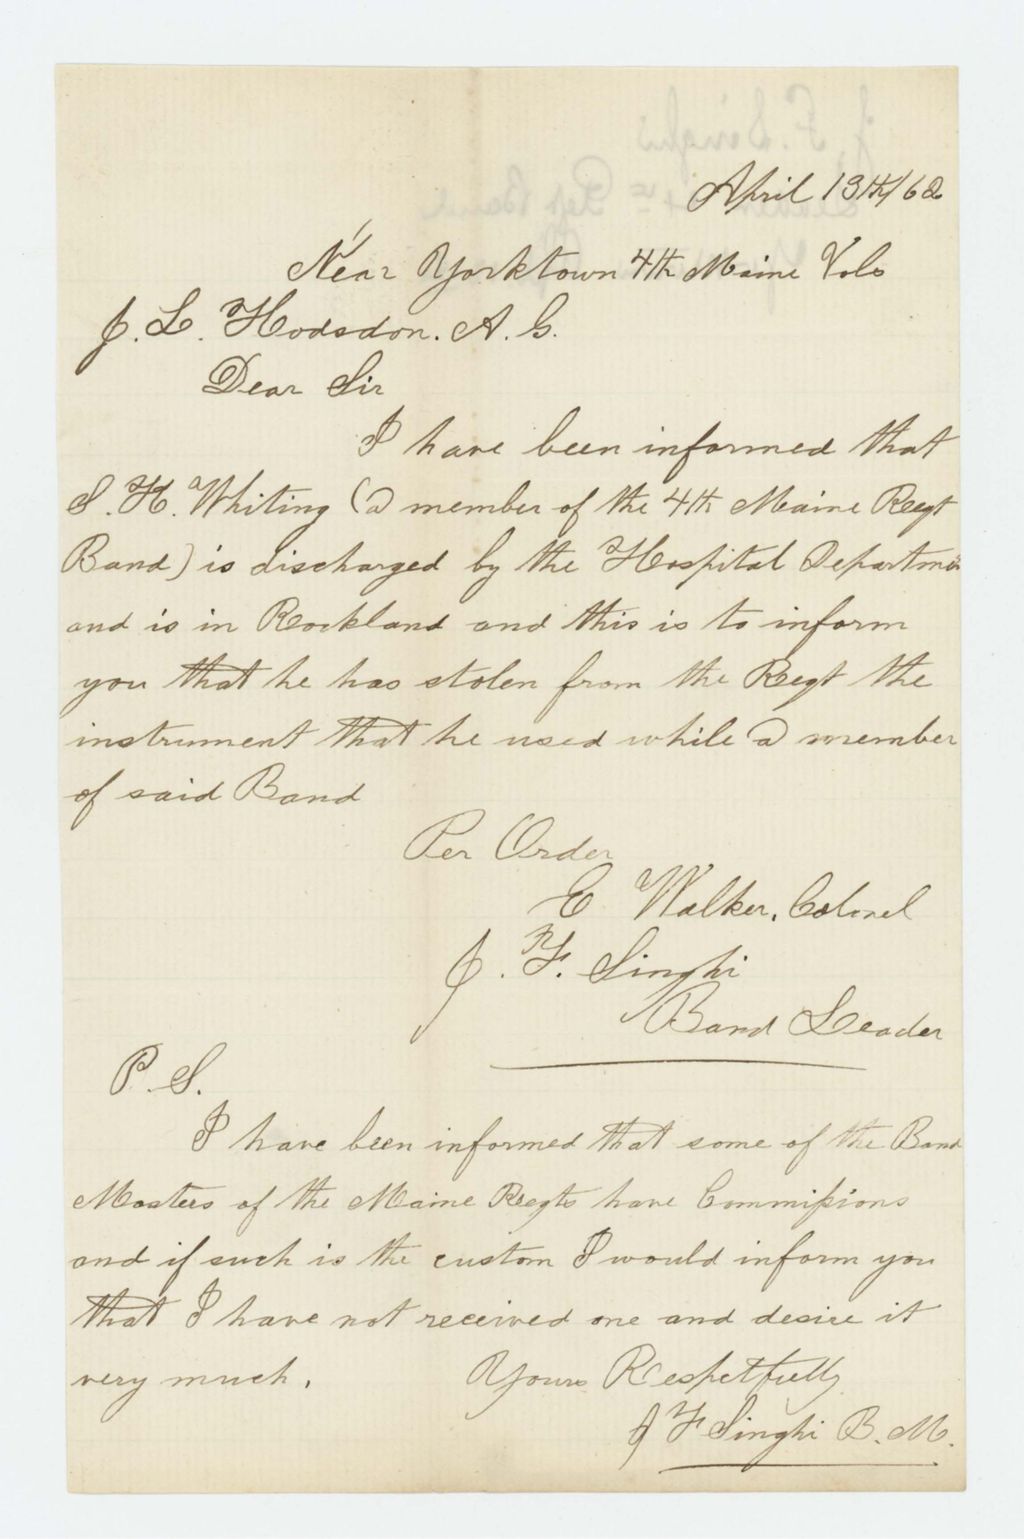 April 13th/62
Near Yorktown 4th Maine Vols
J. L. Hodsdon. A. G.
Dear Sir
I have been informed that
S. H. Whiting (a member of the 4th Maine Regt
Band) is discharged by the Hospital Departmen
and is in Rockland and this is to inform
you that he has stolen from the Regt the
instrument that he used while a member
of said Band
Per Order
E Walker, Colonel
J. F. Singhi
Band Leader
P. S.
I have been informed that some of the Band
Masters of the Maine Regts have Commissions
and if such is the custom I would inform you
that I have not received one and desire it
very much. Yours Respetfully
J F Singhi B. M.